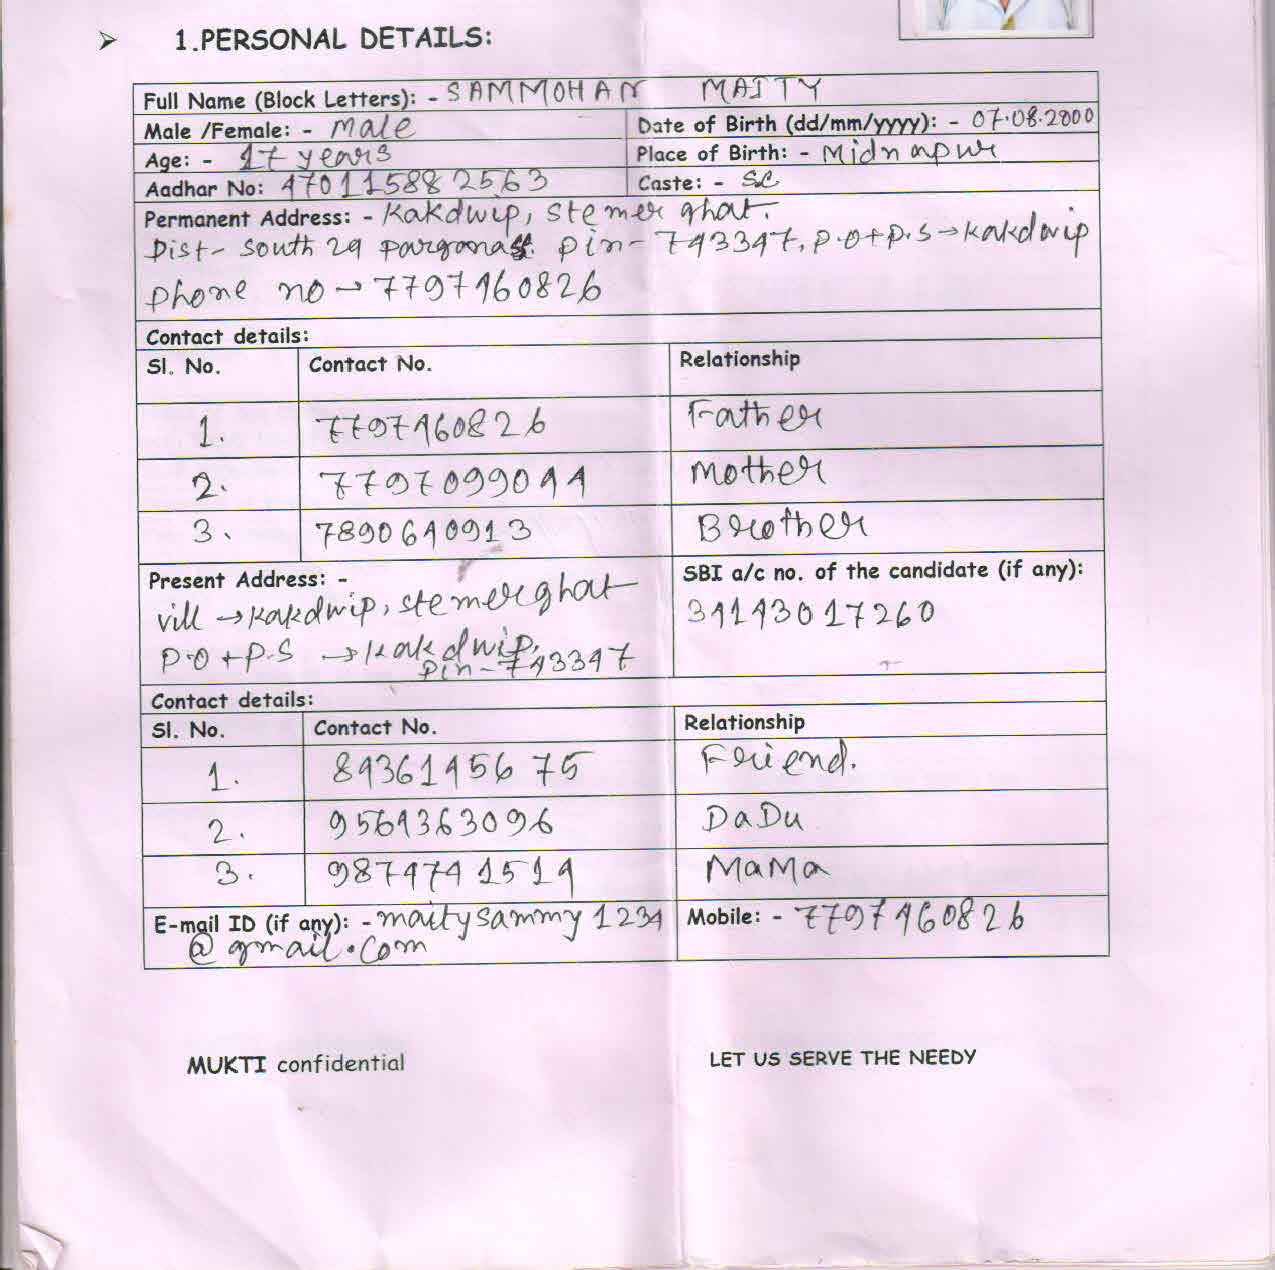 ➢ 1.PERSONAL DETAILS:
Full Name (Block Letters): - SAMMOHAN MAITY
Male /Female: - Male
Date of Birth (dd/mm/yyyy): - 07.08.2000
Age: - 17 years
Place of Birth: - Midnapur
Aadhar No: 470115882563
Caste: - SC
Permanent Address: - Kakdwip, stemer ghat.
Dist- South 24 parganas. pin- 743347, P.O+P.S → Kakdwip
phone no → 7797460826
Contact details:
Sl. No. Contact No. Relationship
1. 7797460826 Father
2. 7797099044 Mother
3. 7890640913 Brother
Present Address: -
SBI a/c no. of the candidate (if any):
vill → Kakdwip, stemerghat
34143017260
P.O+P.S → Kakdwip,
Pin- 743347
Contact details:
Sl. No. Contact No. Relationship
1. 8436145675 Friend.
2. 9564363096 DaDu
3. 9874741514 MaMa
E-mail ID (if any): - maitysammy1234
Mobile: - 7797460826
@gmail.com
MUKTI confidential
LET US SERVE THE NEEDY